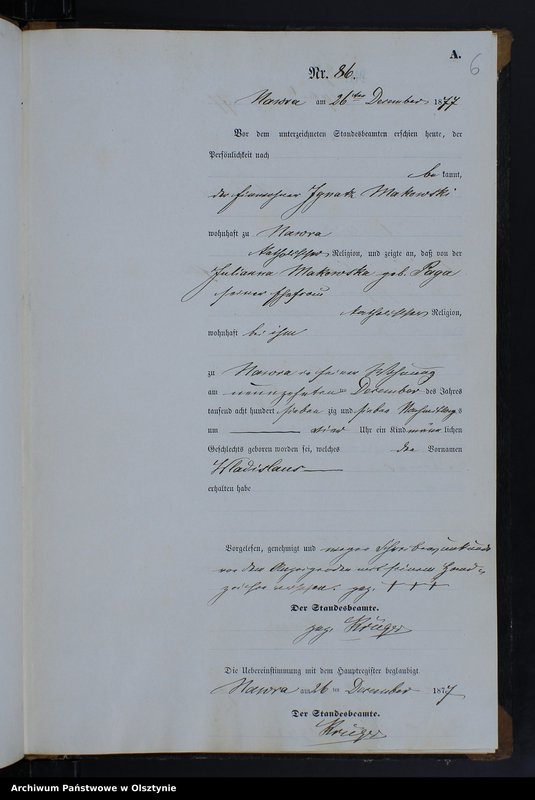 A.
6
Nr. 86.
Nawra am 26ten December 1877
Vor dem unterzeichneten Standesbeamten erschien heute, der
Persönlichkeit nach
bekannt,
der Einwohner Ignatz Makowski
wohnhaft zu Nawra
katholischer Religion, und zeigte an, daß von der
Julianna Makowska geb.
seiner Ehefrau
katholischer Religion,
wohnhaft bei ihm
zu Nawra in seiner Wohnung
am neunzehnten December des Jahres
tausend acht hundert siebenzig und sieben Nachmittags
um vier Uhr ein Kind männlichen
Geschlechts geboren worden sei, welches den Vornamen
Wladislaus
erhalten habe
Vorgelesen, genehmigt und wegen Schreibensunkunde
von dem Anzeigenden mit seinem Hand-
zeichen versehen. gez. + + +
Der Standesbeamte.
gez. Krüger
Die Uebereinstimmung mit dem Hauptregister beglaubigt
Nawra am 26 ten December 1877
Der Standesbeamte.
Krüger
Archiwum Państwowe w Olsztynie